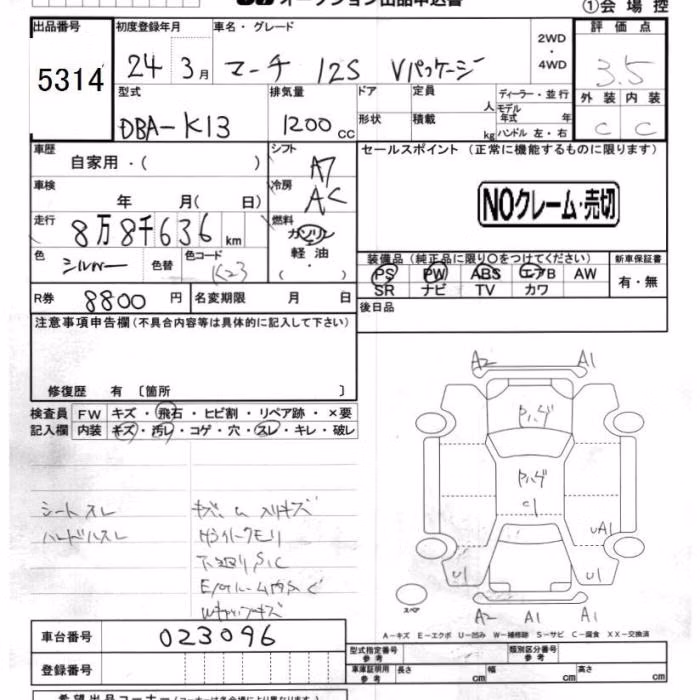 オークション出品申込書
①会場控
出品番号 初度登録年月 車名・グレード 評価点
5314 24年 3月 マーチ 12S Vパッケージ 2WD・4WD 3.5
型式 排気量 ドア 定員 人 ディーラー・並行 外装 内装
DBA-K13 1200cc 形状 積載 kg モデル年式 年式 ハンドル 左・右 C C
車歴 自家用・( ) シフト AT セールスポイント (正常に機能するものに限ります)
車検 年 月( 日) 冷房 AC NOクレーム・売切
走行 8万8千636km 燃料 ガソリン 軽油 ( ・ )
色 シルバー 色替 色コード K23 装備品 (純正品に限り○をつけてください) 新車保証書
PS PW ABS エアB AW 有・無
SR ナビ TV カワ
R券 8800円 名変期限 月 日 後日品
注意事項申告欄(不具合内容等は具体的に記入して下さい)
修復歴 有 〔箇所 〕
検査員 FW キズ・飛石・ヒビ割・リペア跡・×要
記入欄 内装 キズ・汚レ・コゲ・穴・スレ・キレ・破レ
A2 A1
シートスレ
ハンドルスレ
下廻りSC
C1
UA1
U1 U1
スペア
A2 A1 A1
A－キズ E－エクボ U－凹み W－補修跡 S－サビ C－腐食 XX－交換済
車台番号 023096
型式指定番号 参考 類別区分番号 参考
登録番号 車庫証明用 参考 長さ cm 幅 cm 高さ cm
希望出品コーナー(コーナーは各会場により異なります)